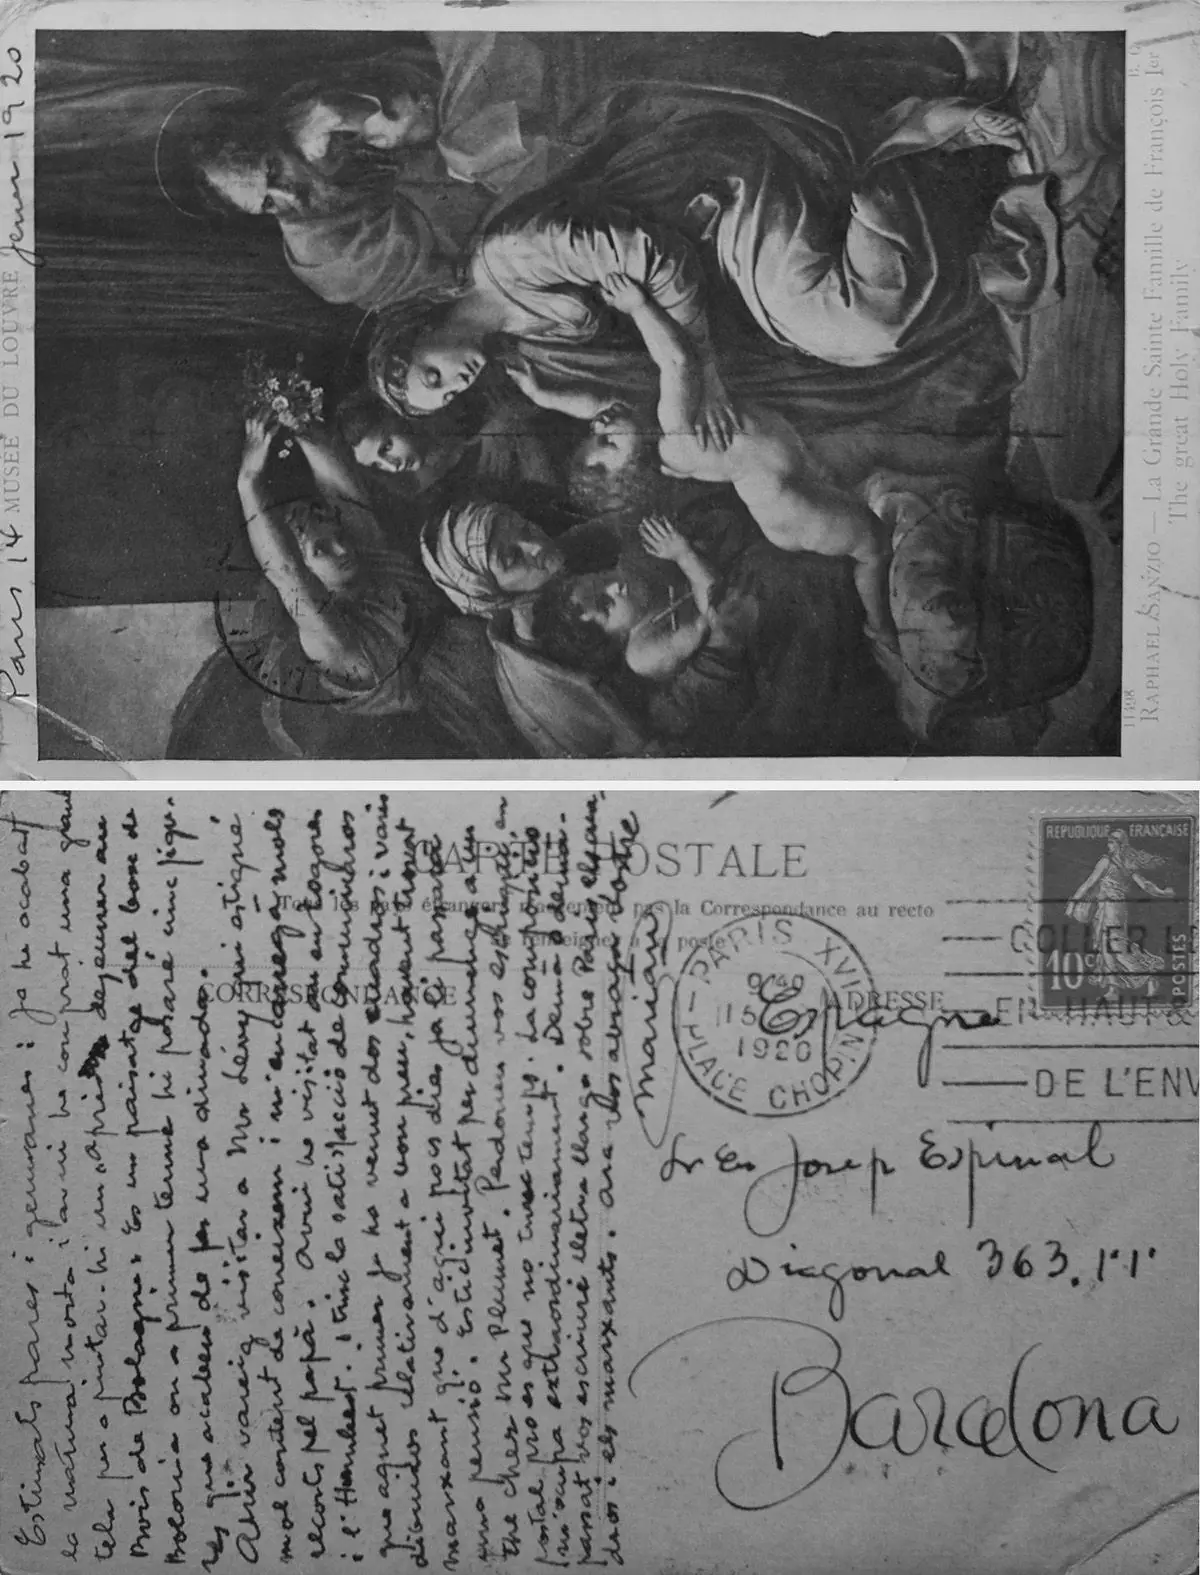 Paris 14 Jener 1920
MUSÉE DU LOUVRE
11498
B. G.
RAPHAEL SANZIO — La Grande Sainte Famille de François Ier
The great Holy Family
CARTE POSTALE
Tous les pays étrangers n'acceptent pas la Correspondance au recto
se renseigner à la poste
CORRESPONDANCE
ADRESSE
REPUBLIQUE FRANÇAISE
10c
POSTES
PARIS XVI
9 40
15
1920
PLACE CHOPIN
COLLER
EN HAUT &
DE L'ENV
Estimats pares i germanes: Ja he acabat
la natura morta i avui he comprat una gran
tela per a pintar-hi un "après dejeuner au
Bois de Bologne". Es un paisatge del bosc de
Bolonia on a primer terme hi posaré cinc figu-
res que acaben de fer una dinada.
Ahir vareig visitar a Mr Lévy qui estigué
mol content de coneixem i m'encarregà mols
recorts pel papà. Avui he visitat an en Togores
i l'Humbert. i tinc la satisfacció de comunicarvos
que aquet primer ja ha venut dos cuadros i varis
dibuixos relativament a bon preu, havent trovat
marxant que d'aqui pocs dies ja li passarà
una pensió. Estic invitat per diumenge a un
the chez Mr Plumet. Perdoneu vos escrigui en
postal pro es que no tinc temps. La composició
m'ocupa extraordinariament. Demà o demà-
passat vos escriuré lletra llarga sobre Paris, els qua-
dros i els marxants. Ara vos abraça vostre
Mariano
Espagne
Sr En Josep Espinal
Diagonal 363. 1er 1a
Barcelona